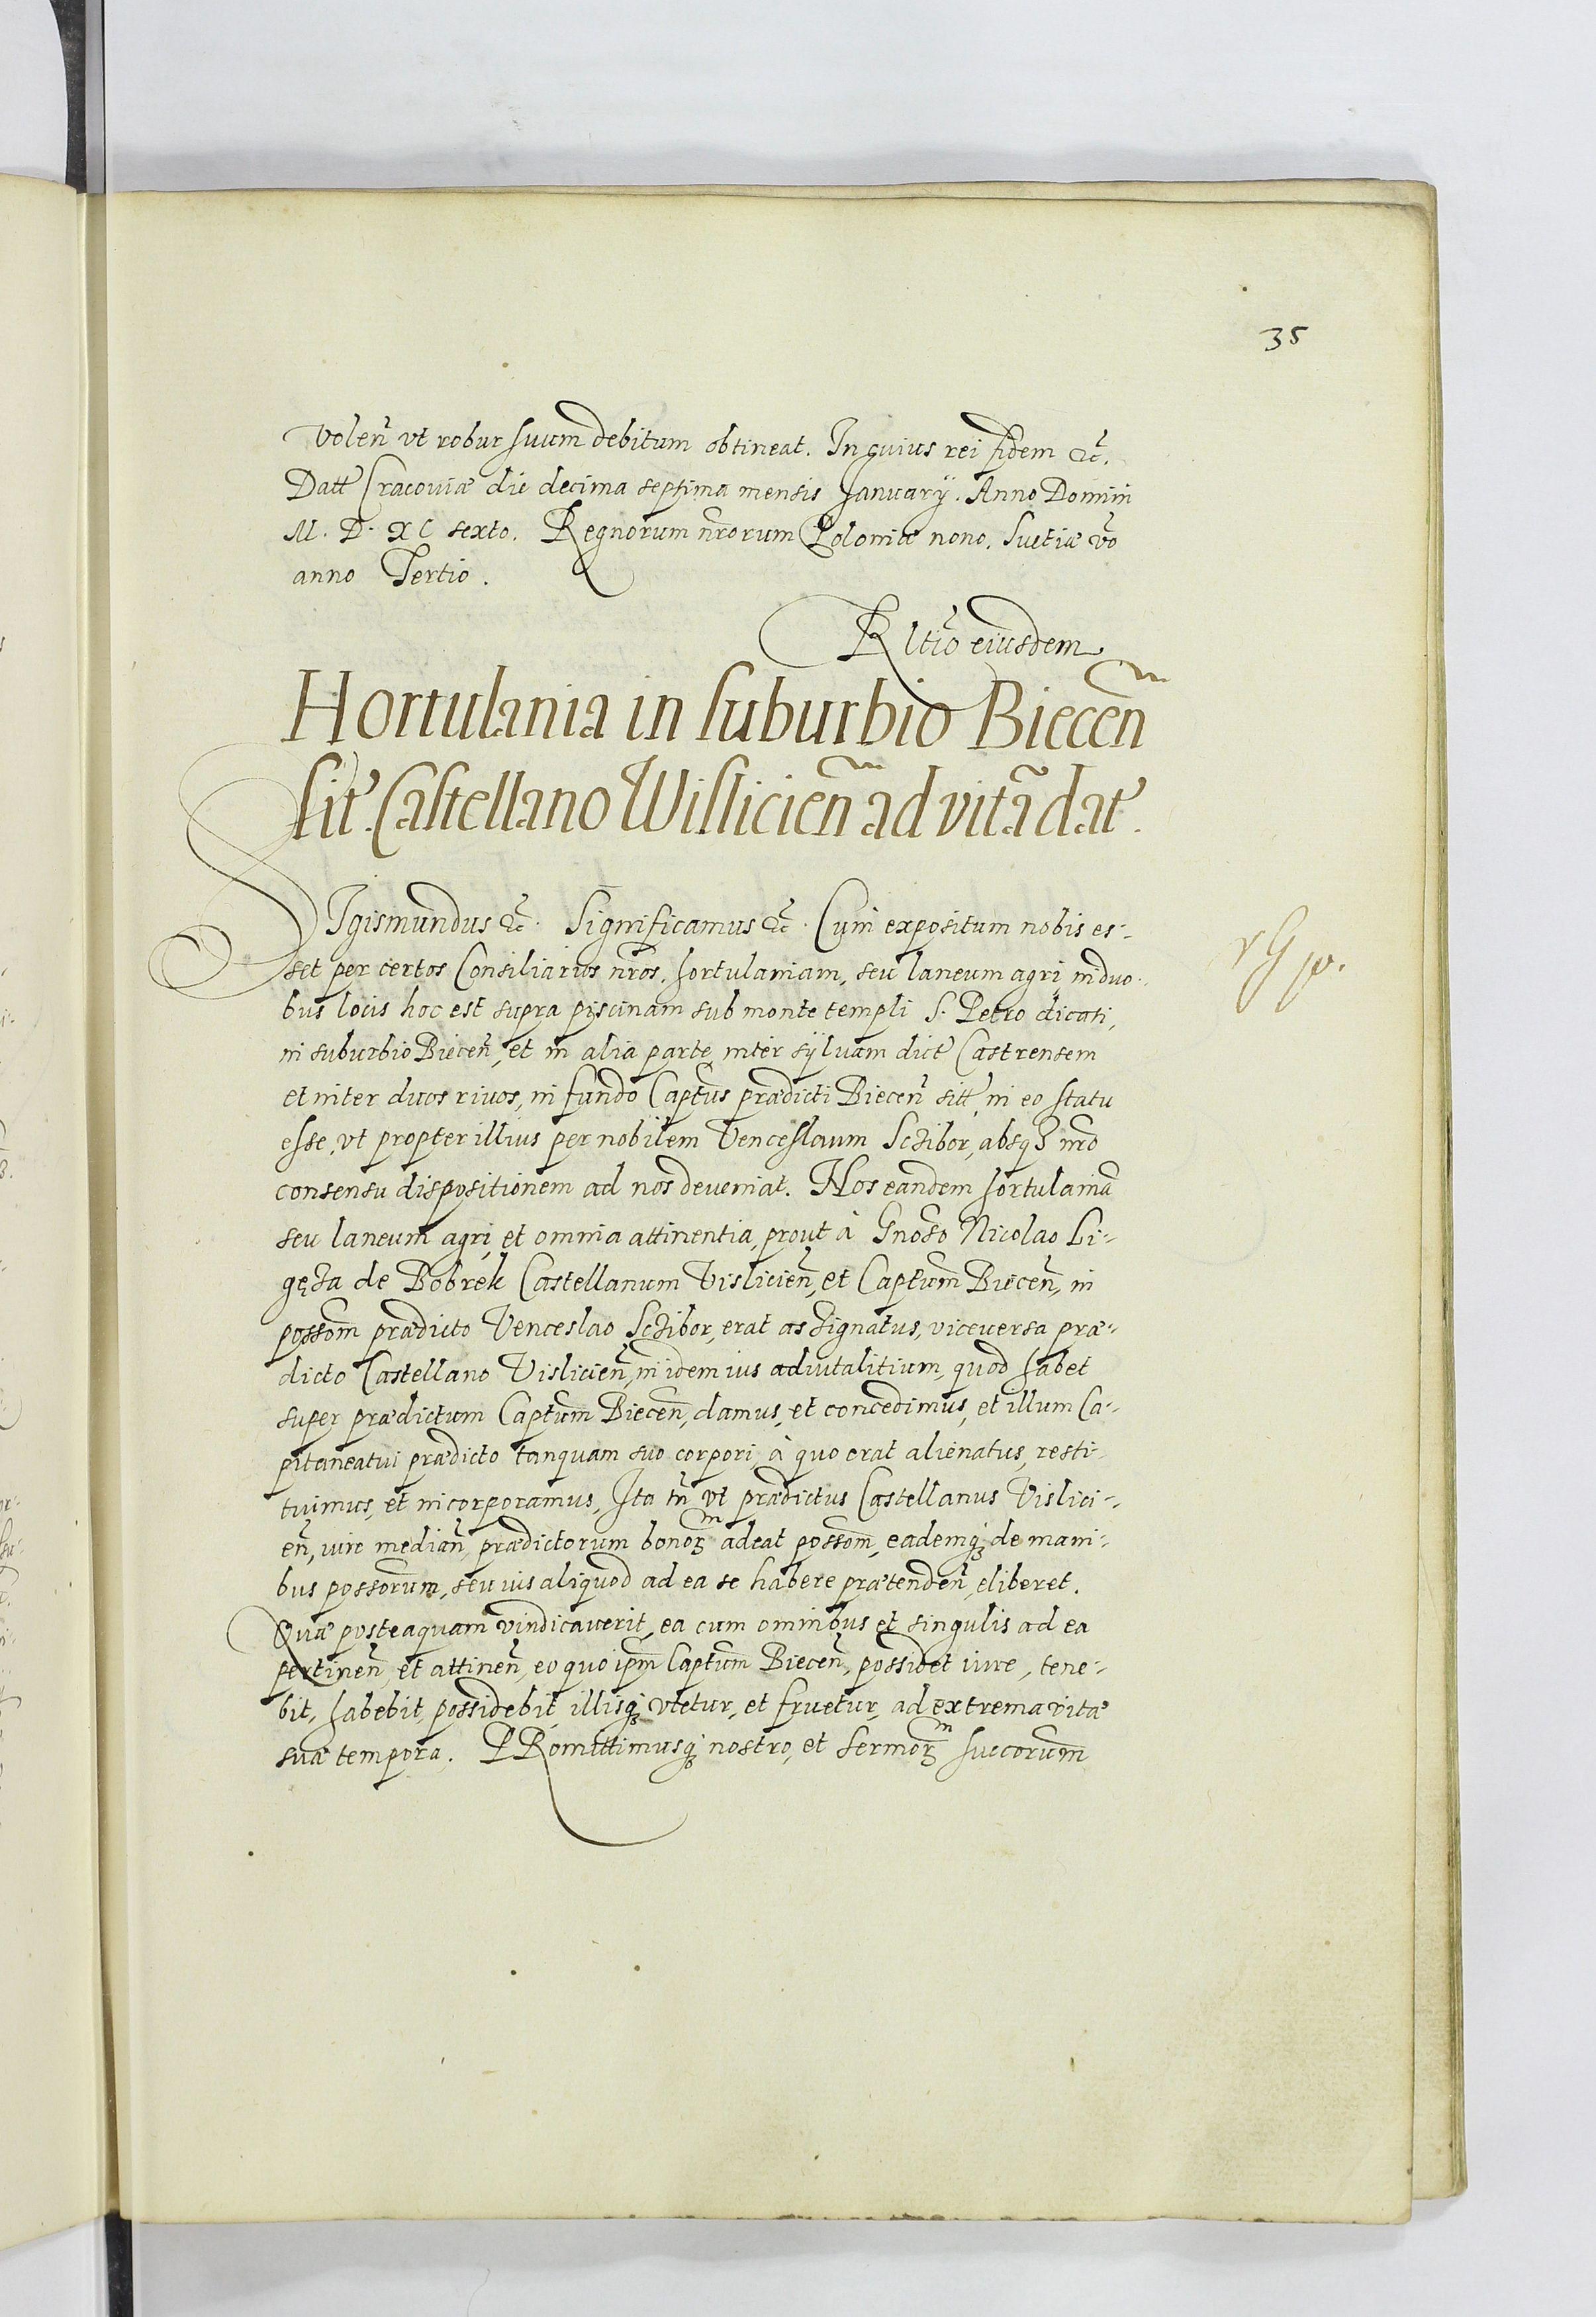 35
volen̄ vt robur suum debitum obtineat. In cuius rei fidem &c̄.
Datt Cracoviæ die decima septima mensis Januarÿ. Anno Domini
M. D. XC sexto. Regnorum nr̄orum Poloniæ nono. Suetiæ v̄o
anno Tertio.
Rltīo eiusdem
Hortulania in suburbio Biecen̄
sit. Castellano Wislicien̄ ad vitā dat.
SIgismundus &c̄. Significamus &c̄. Cum expositum nobis es-
set per certos Consiliarios nr̄os. hortulaniam, seu laneum agri, in duo-
bus locis hoc est supra piscinam sub monte templi S. Petro dicati,
in suburbio Biecen̄, et in alia parte, inter sÿluam dict Castrensem
et inter duos riuos, in fundo Captūs prædicti Biecen̄ sitt, in eo statu
esse, vt propter illius per nobilem Venceslaum Sczibor, absq3 nr̄o
consensu dispositionem ad nos deueniat. Nos eandem hortulaniā
seu laneum agri, et omnia attinentia, prout à Gnōso Nicolao Li-
gęza de Bobrek Castellanum Vislicien̄, et Captūm Biecen̄, in
possom̄ prædicto Venceslao Sczibor, erat assignatus, viceuersa præ-
dicto Castellano Vislicien̄, in idem ius aduitalitium, quod habet
super prædictum Captūm Biecen̄, damus, et concedimus, et illum Ca-
pitaneatui prædicto tanquam suo corpori, à quo erat alienatus, resti-
tuimus, et incorporamus, Ita tn̄ vt prædictus Castellanus Vislici-
en̄, iure median̄ prædictorum bonoꝝ adeat possom̄, eademq3 de mani-
bus possorum̄, seu ius aliquod ad ea se habere prætenden̄, eliberet.
Quæ posteaquam vindicauerit, ea cum omnibus et singulis ad ea
pertinen̄, et attinen̄, eo quo ipm̄ Captūm Biecen̄, possidet iure, tene-
bit, habebit, possidebit, illisq3 vtetur, et fruetur, ad extrema vitæ
suæ tempora. PRomittimusq3 nostro, et sermoꝝ succorum̄